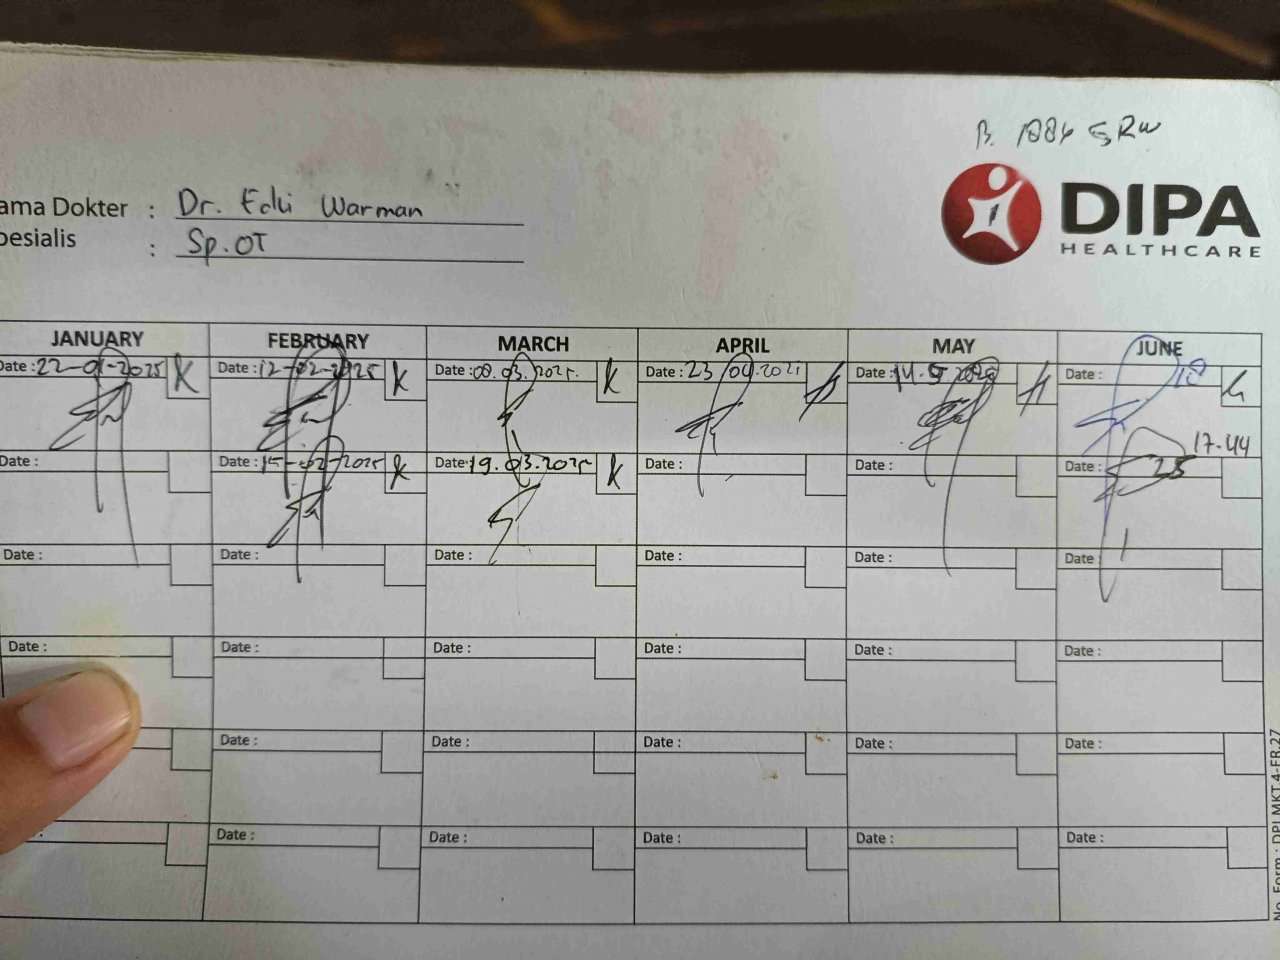 B. 1884 SRW
DIPA
HEALTHCARE
ama Dokter : Dr. Edi Warman
pesialis : Sp.OT
JANUARY FEBRUARY MARCH APRIL MAY JUNE
Date : 22-01-2025 K Date : 12-02-2025 K Date : 08.03.2025. K Date : 23 04.2025 Date : 14.5 2025 Date : 18
17.44
Date : Date : 15-02-2025 K Date : 19.03.2025 K Date : Date : Date : 25
Date : Date : Date : Date : Date : Date :
Date : Date : Date : Date : Date : Date :
Date : Date : Date : Date : Date :
Date : Date : Date : Date : Date :
No. Form : DPI.MKT.4-FR.27